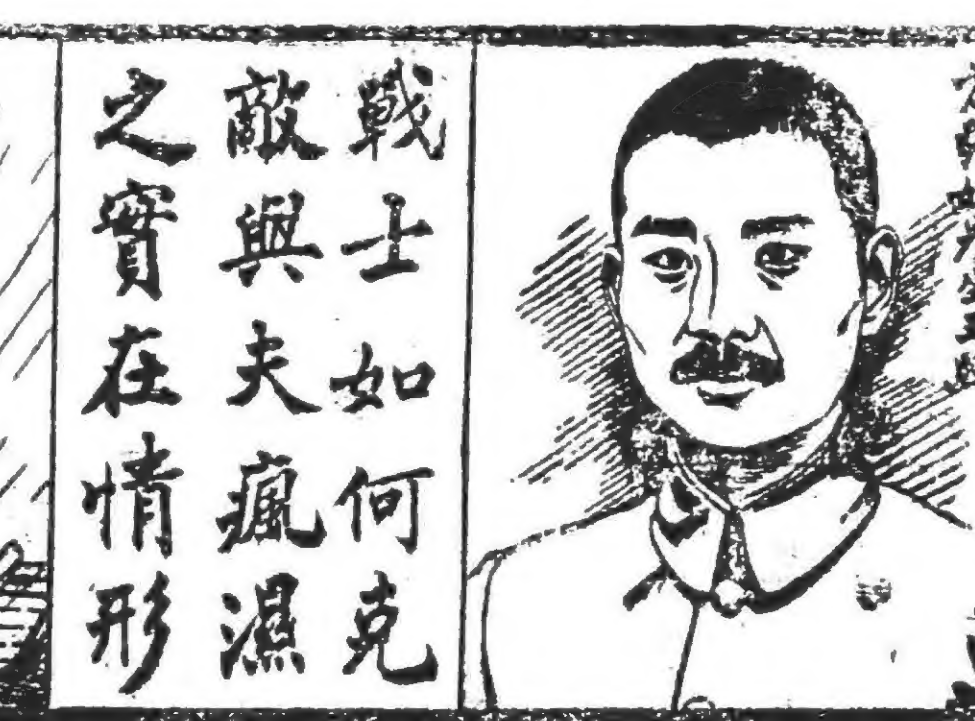 戰士如何克
敵與夫瘋濕
之實在情形